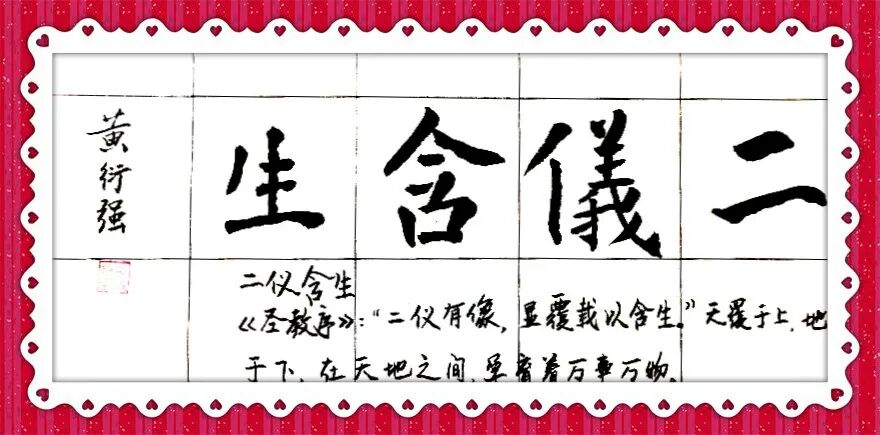 二儀含生
黄衍强
二仪含生
《圣教序》:“二仪有像,显覆载以含生。”天覆于上,地
于下,在天地之间,孕育着万事万物。